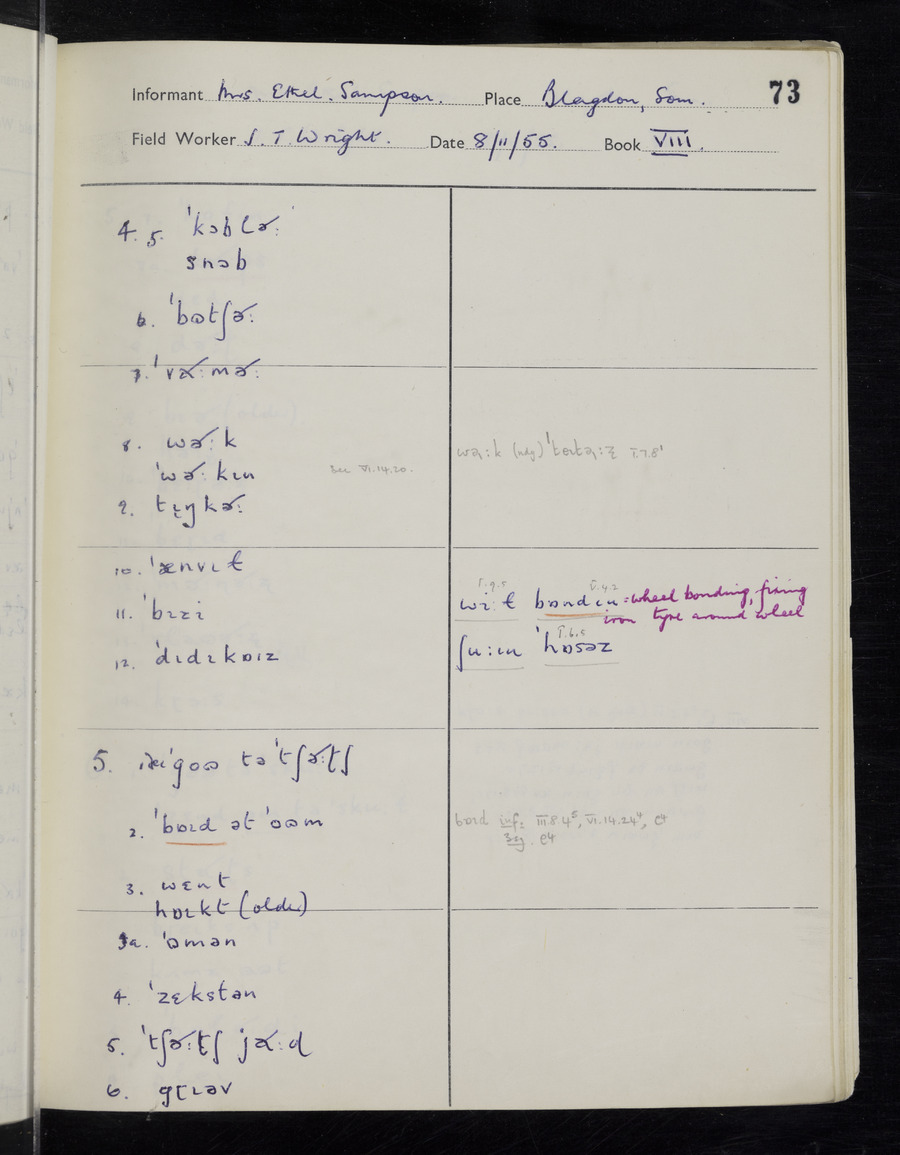 Informant Mrs. Ethel. Sampson. Place Blagdon, Som. 73
Field Worker S. T. Wright. Date 8/11/55. Book VIII.
4. 5. ˈkɔblɚ:
snɔb
6. ˈbɷtʃɚ:
7. ˈvɑ˞:mɚ:
8. wɚ:k
ˈwɚ:kɩn see VI.14.20.
9. tɩŋkɚ:
10. ˈænvɩɫ
11. ˈbɪzi
12. ˈdɪdɪkɒɪz
V.9.5 V.4.2
wi:ɫ bɒndɩn = wheel bonding, fixing
iron tyre around wheel
V.6.5
ʃu:ɩn ˈhɒsəz
5. goɷ tə ˈtʃɚ:tʃ
2. ˈbɒɪd ət ˈoɷm
bɒɪd inf: III.8.4⁵, VI.14.24⁴, e4
3. wɛnt
hɒɪkt (older)
3a. ˈɷmən
4. ˈzɛkstən
5. ˈtʃɚ:tʃ jɑ˞:d
6. gɽɩəv